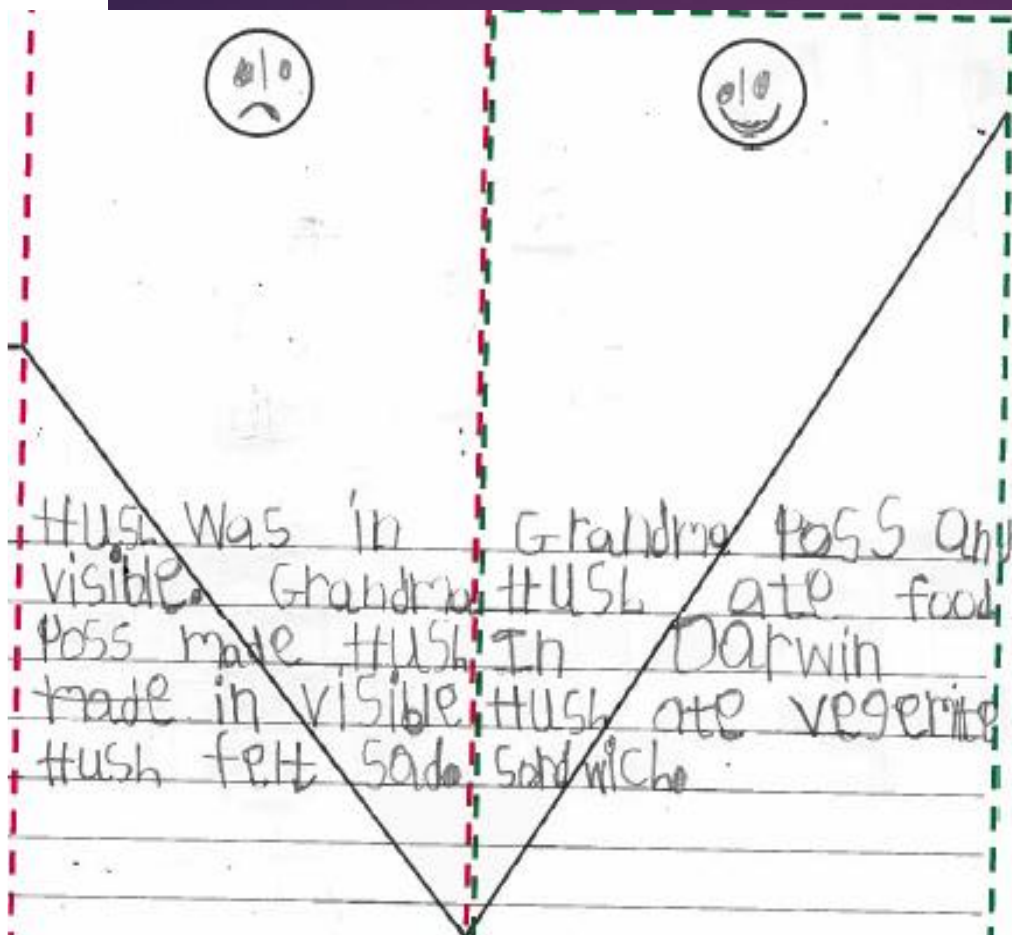 Hush was in
visible. Grandma
Poss made Hush
made in visible
Hush felt sad.
Grandma Poss and
Hush ate food
In Darwin
Hush ate vegemite
sandwich.